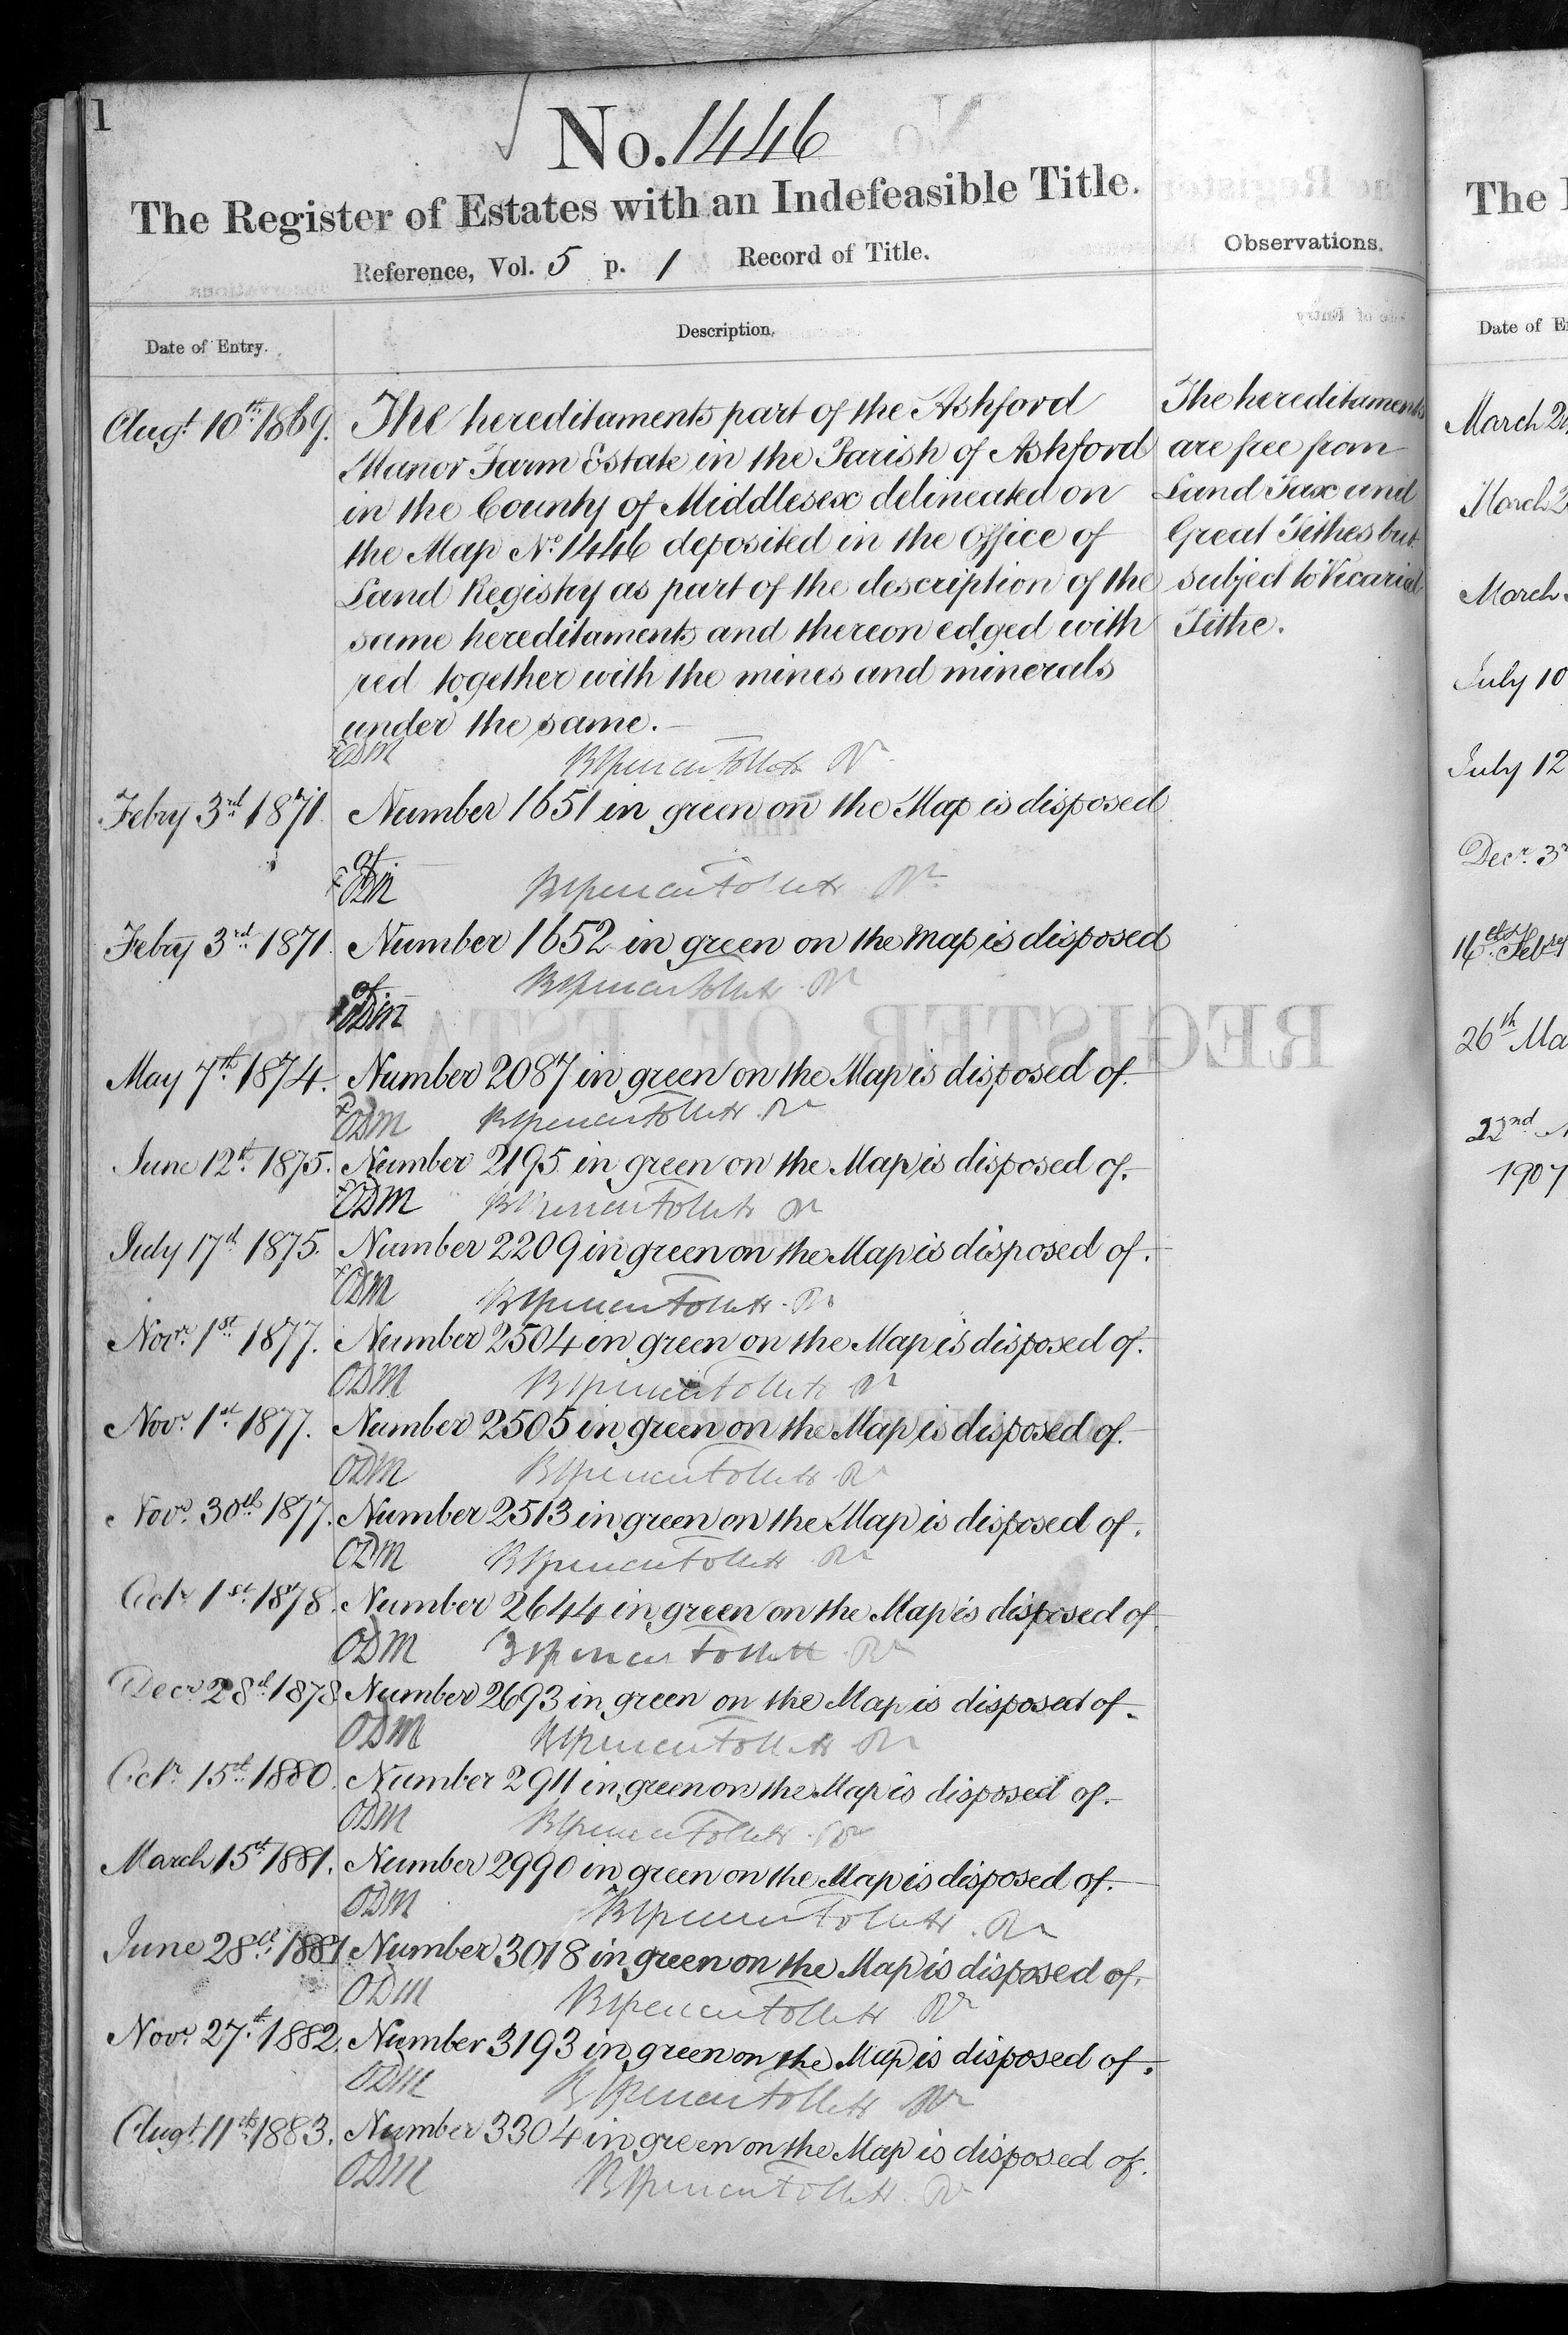 1
No. 1446
The Register of Estates with an Indefeasible Title.
Reference, Vol. 5 p. 1 Record of Title.
Observations.
Date of Entry.
Description.
Augt. 10th. 1869.
The hereditaments part of the Ashford
Manor Farm Estate in the Parish of Ashford
in the County of Middlesex delineated on
the Map No. 1446 deposited in the Office of
Land Registry as part of the description of the
same hereditaments and thereon edged with
red together with the mines and minerals
under the same.
The hereditaments
are free from
Land Tax and
Great Tithes but
subject to Vicarial
Tithe.
ODM BSpencer Follett Rr
Febry 3rd 1871. Number 1651 in green on the Map is disposed
of.
ODM BSpencer Follett Rr
Febry 3rd 1871. Number 1652 in green on the map is disposed
of.
ODM BSpencer Follett Rr
May 7th 1874. Number 2087 in green on the Map is disposed of.
ODM BSpencer Follett Rr
June 12th. 1875. Number 2195 in green on the Map is disposed of.
ODM BSpencer Follett Rr
July 17th 1875. Number 2209 in green on the Map is disposed of.
ODM BSpencer Follett Rr
Novr. 1st. 1877. Number 2504 in green on the Map is disposed of.
ODM BSpencer Follett Rr
Novr. 1st. 1877. Number 2505 in green on the Map is disposed of.
ODM BSpencer Follett Rr
Novr. 30th 1877. Number 2513 in green on the Map is disposed of.
ODM BSpencer Follett Rr
Octr 1st. 1878. Number 2644 in green on the Map is disposed of.
ODM BSpencer Follett Rr
Decr. 28th 1878. Number 2693 in green on the Map is disposed of.
ODM BSpencer Follett Rr
Octr. 15th. 1880. Number 2911 in green on the Map is disposed of.
ODM BSpencer Follett Rr
March 15th 1881. Number 2990 in green on the Map is disposed of.
ODM BSpencer Follett Rr
June 28th. 1881. Number 3018 in green on the Map is disposed of.
ODM BSpencer Follett Rr
Novr. 27th. 1882. Number 3193 in green on the Map is disposed of.
ODM BSpencer Follett Rr
Augt. 11th. 1883. Number 3304 in green on the Map is disposed of.
ODM BSpencer Follett Rr
The
Date of
March
March
March
July 10
July 12
Decr. 3
16th Feb
26th Ma
22nd
1907